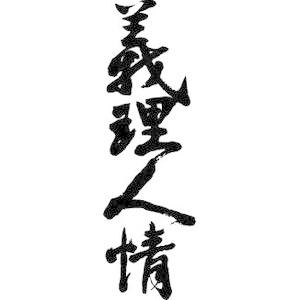 義理人情